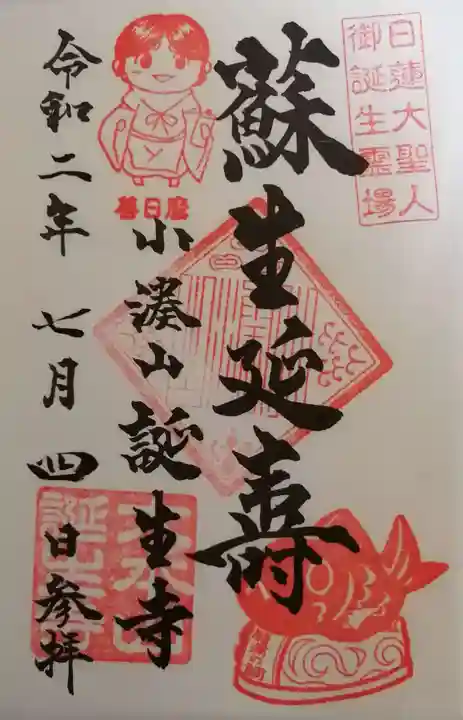 日蓮大聖人
御誕生霊場
蘇生延寿
小湊山誕生寺
善日麿
令和二年七月四日参拝